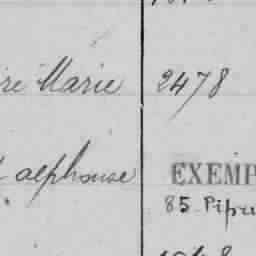 Marie 2478
alphonse EXEMP
85. Pipu